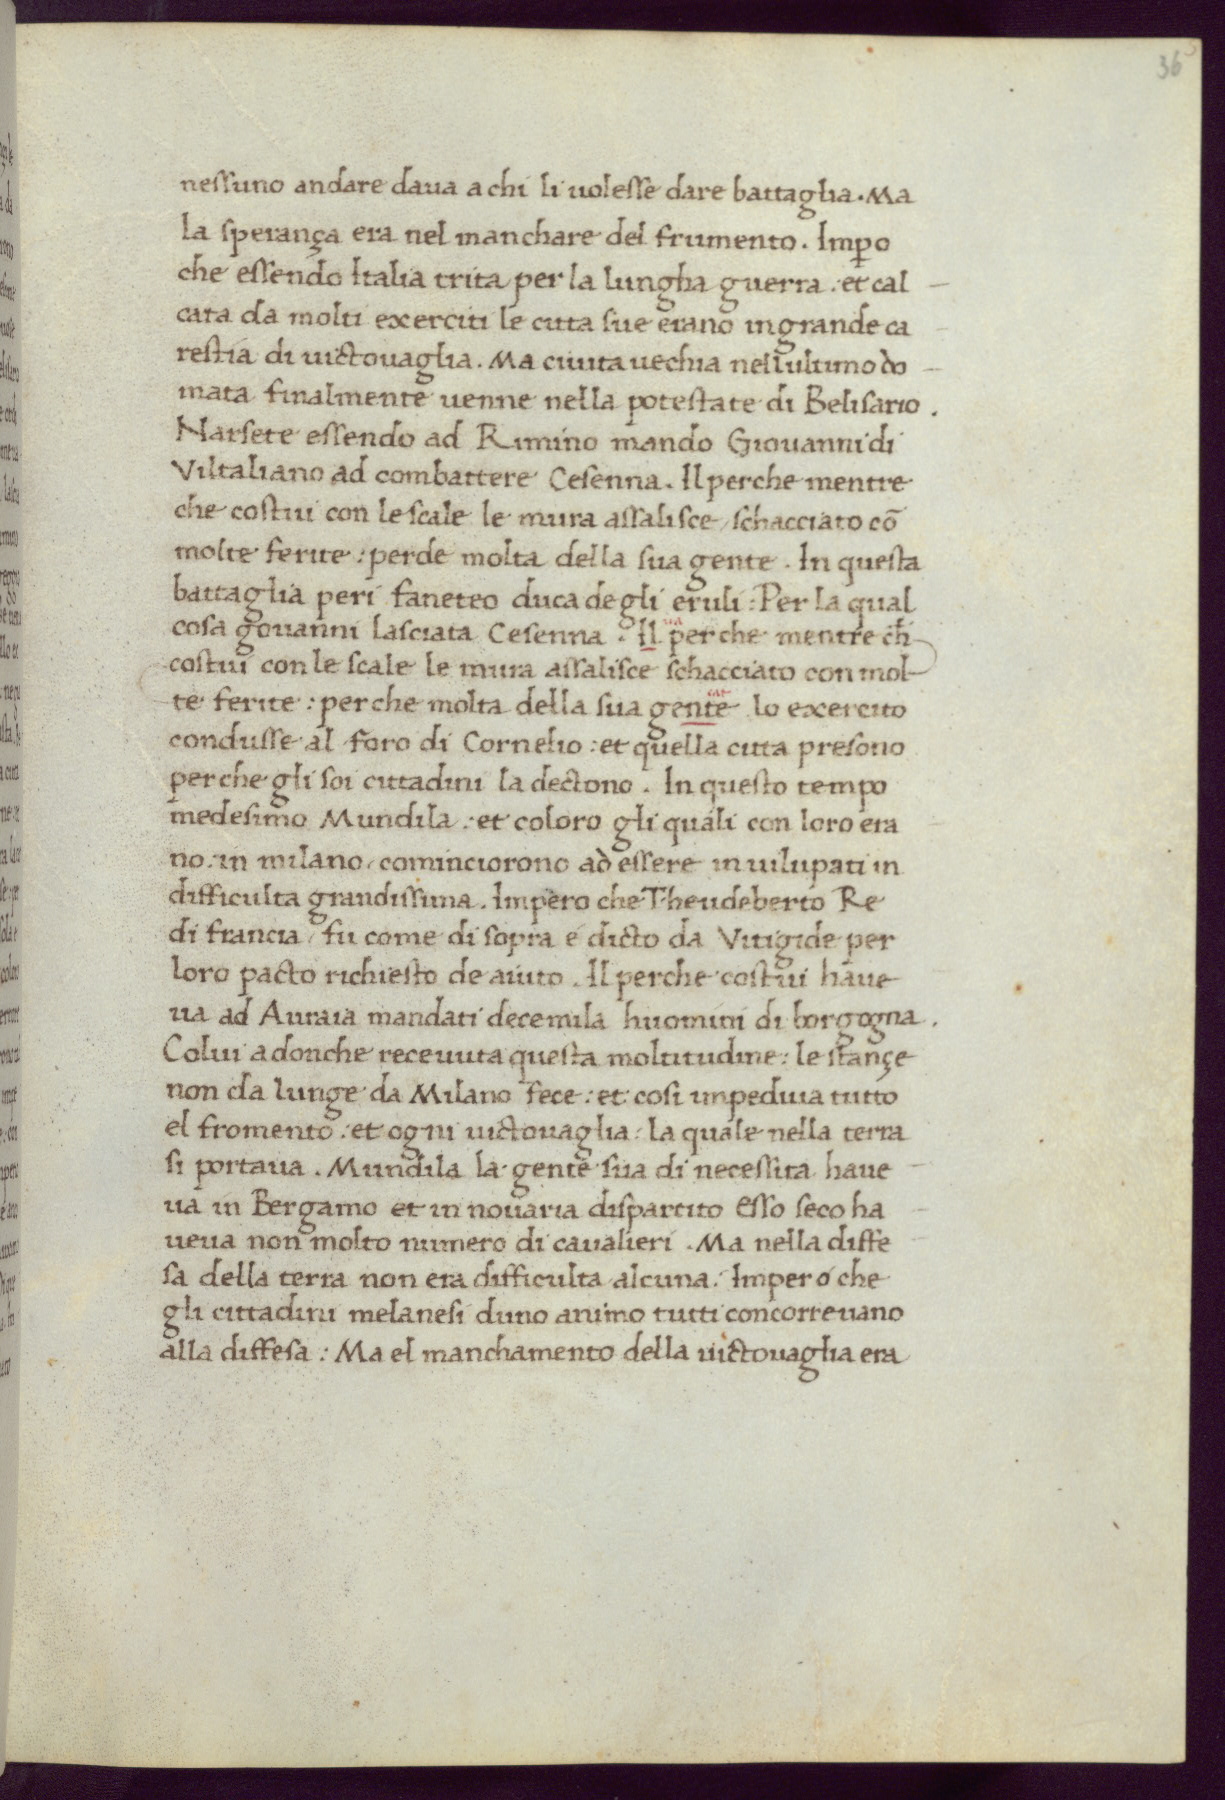 36
nessuno andare daua a chi li uolesse dare battaglia. Ma
la sperança era nel manchare del frumento. Imꝑo
che essendo Italia trita per la lungha guerra: et cal
cata da molti exerciti le citta sue erano in grande ca
restia di uictouaglia. Ma ciuita uechia nell ultimo do
mata finalmente uenne nella potestate di Belisario.
Narsete essendo ad Rimino mando Giouanni di
Viltaliano ad combattere Cesenna. Il perche mentre
che costui con le scale le mura assalisce, schacciato cõ
molte ferite: perde molta della sua gente. In questa
battaglia peri faneteo duca degli eruli: Per la qual
cosa gouanni lasciata Cesenna. Il ua perche mentre ch̄
costui con le scale le mura assalisce schacciato con mol
te ferite: per che molta della sua gente cat lo exercito
condusse al foro di Cornelio: et quella citta presono
perche gli soi cittadini la dectono. In questo tempo
medesimo Mundila: et coloro gli quali con loro era
no: in milano, cominciorono ad essere inuilupati in
difficulta grandissima. Impero che Theudeberto Re
di francia, fu come di sopra e dicto da Vitigide per
loro pacto richiesto de aiuto. Il perche costui haue
ua ad Auraia mandati decemila huomini di borgogna.
Colui adonche receuuta questa moltitudine: le stançe
non da lunge da Milano fece: et cosi impediua tutto
el fromento: et ogni uictouaglia: la quale nella terra
si portaua. Mundila la gente sua di necessita haue
ua in Bergamo et in nouaria dispartito esso seco ha
ueua non molto numero di caualieri. Ma nella diffe
sa della terra non era difficulta alcuna. Impero che
gli cittadini melanesi duno animo tutti concorreuano
alla diffesa: Ma el manchamento della uictouaglia era